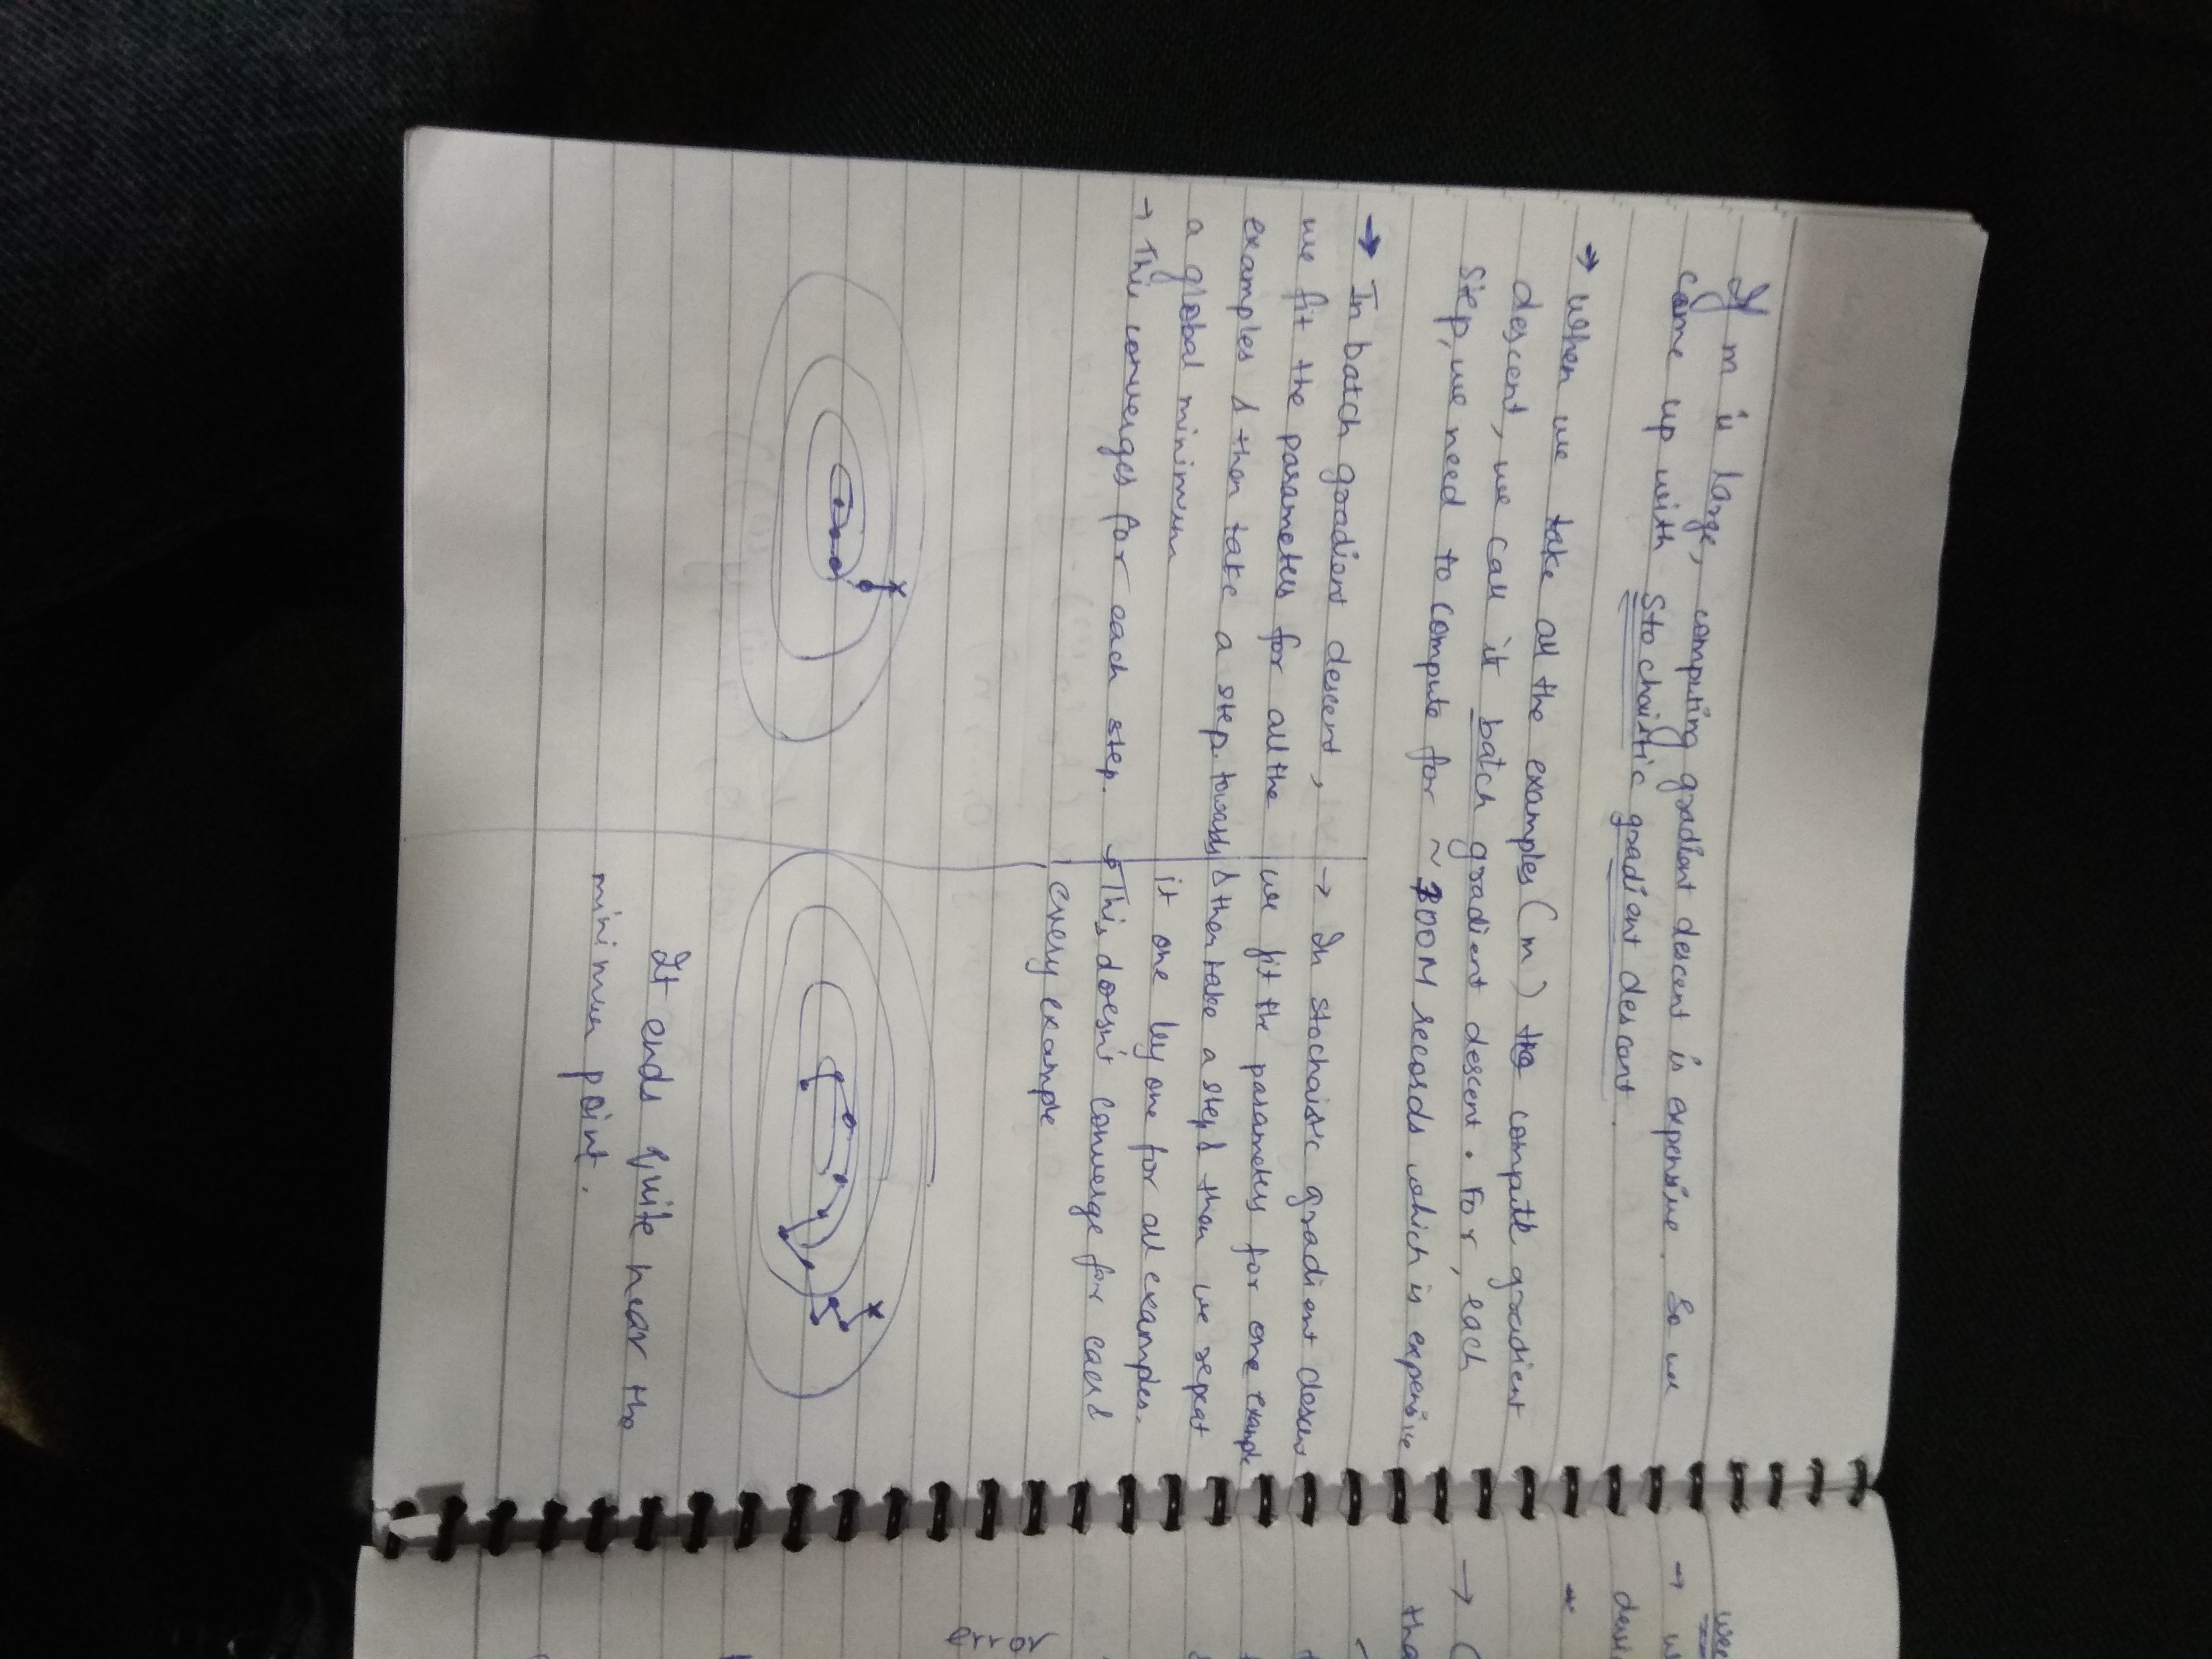 If m is large, computing gradient descent is expensive. So we
came up with Stochaistic gradient descent.
→ When we take all the examples (m) to compute gradient
descent, we call it batch gradient descent. For, each
step, we need to compute for ~ 300M records which is expensive
→ In batch gradient descent,
we fit the parameters for all the
examples & then take a step towards
a global minimum
→ This converges for each step.
→ In stochaistic gradient descent
we fit the parameters for one example
& then take a step & then we repeat
it one by one for all examples.
→ This doesn't converge for each &
every example
It ends quite near the
minimum point.
→
→
tha
error